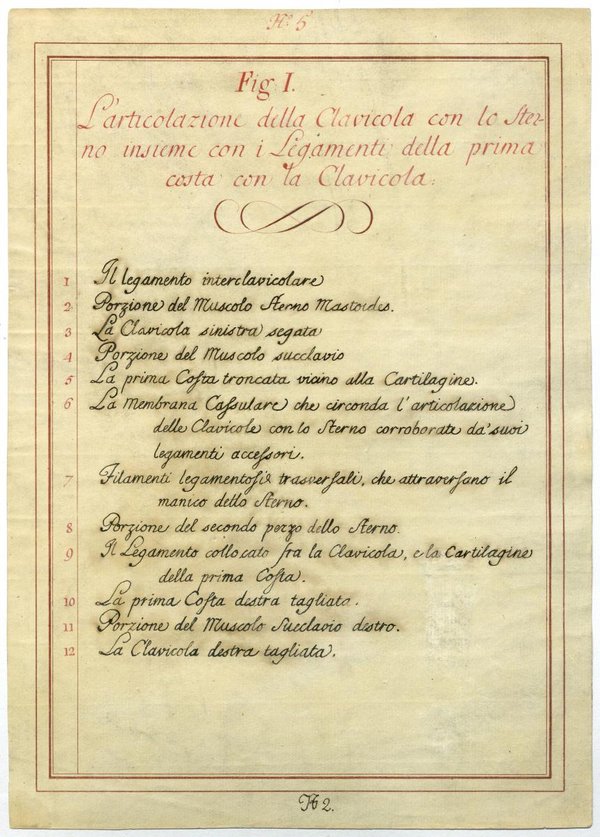 N.º 5
Fig I.
L'articolazione della Clavicola con lo Ster-
no insieme con i Legamenti della prima
costa con la Clavicola.
1 Il legamento interclavicolare
2 Porzione del Muscolo Sterno Mastoides.
3 La Clavicola sinistra segata
4 Porzione del Muscolo succlavio
5 La prima Costa troncata vicino alla Cartilagine.
6 La Membrana Cassulare che circonda l'articolazione
delle Clavicole con lo Sterno corroborata da' suoi
legamenti accessori.
7 Filamenti legamentosi trasversali, che attraversano il
manico dello Sterno.
8 Porzione del secondo pezzo dello Sterno.
9 Il Legamento collocato fra la Clavicola, e la Cartilagine
della prima Costa.
10 La prima Costa destra tagliata.
11 Porzione del Muscolo Succlavio destro.
12 La Clavicola destra tagliata.
N 2.